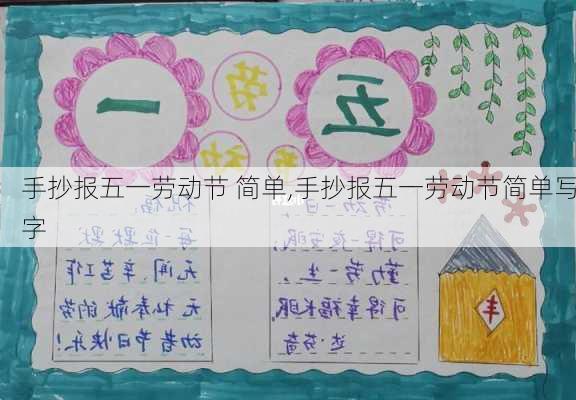 五一
劳动节
手抄报五一劳动节 简单,手抄报五一劳动节简单写
字
祝福:
每一位默默
无闻、辛苦工作
无私奉献的劳
动者节日快乐!
劳动一日,
可得一夜安眠,
勤劳一生,
可得幸福长眠
达·芬奇
丰